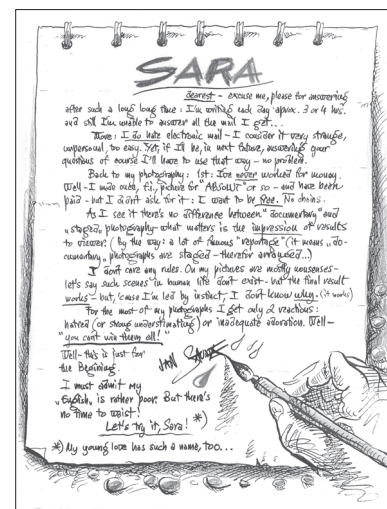 SARA
dearest - excuse me, please for answering
after such a long long time : I'm writing each day aprox. 3 or 4 hrs.
and still I'm unable to answer all the mail I get...
More : I do hate electronic mail - I consider it very strange,
unpersonal, too easy. Yet, if I'll be, in next future, answering your
questions of course I'll have to use that way - no problem.
Back to my photography : 1st : I've never worked for money.
Well - I made once, f.i., picture for "ABSOLUT" or so - and have been
paid - but I didn't ask for it : I want to be free. No chains.
As I see it there's no difference between "documentary" and
"staged" photography - what matters is the impression of results
to viewer. (by the way : a lot of famous "reportage" (it means "do-
cumentary" photographs are staged - therefor arranged...)
I don't care any rules. On my pictures are mostly nonsenses -
let's say such scenes in human life don't exist - but the final result
works - but, 'cause I'm led by instinct, I don't know why. (it works)
For the most of my photographs I get only 2 reactions :
hatred (or strong understimating) or inadequate adoration. Well -
"you can't win them all!"
Well - this is just for
the Begining.
I must admit my
"English" is rather poor. But there's
no time to waist!
Let's try it, Sara! *)
*) My young love has such a name, too...